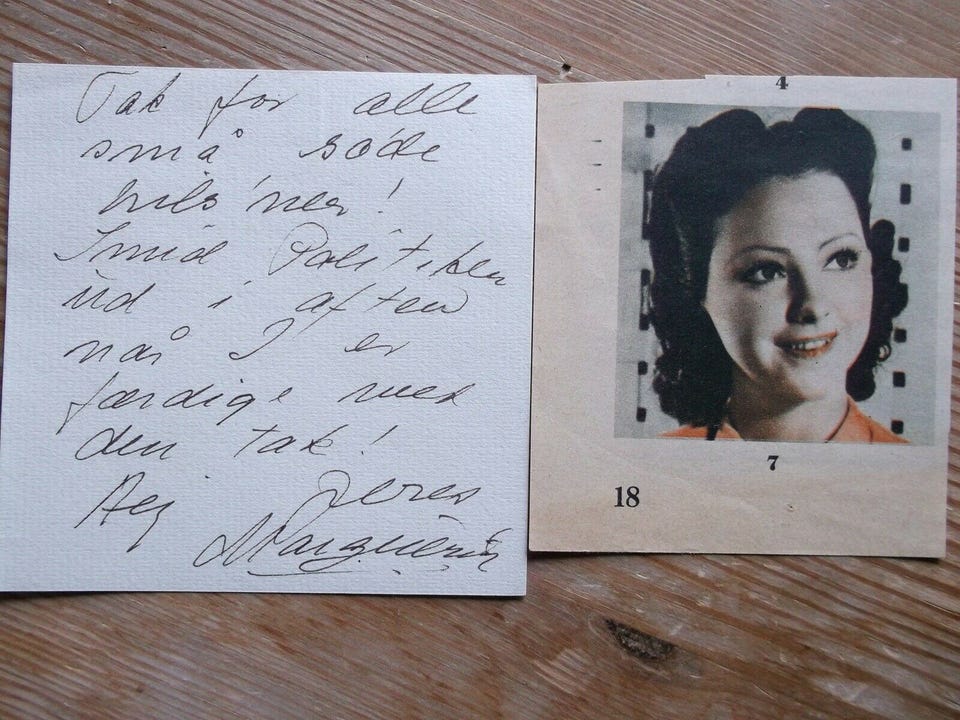 Tak for alle
små søde
hils'ner!
Smid Politiken
ud i aften
når I er
færdige med
den tak!
Hej Deres
4
7
18